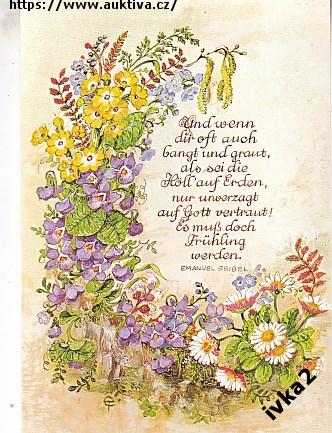 https://www.auktiva.cz/
Und wenn
dir oft auch
bangt und graut,
als sei die
Höll' auf Erden,
nur unverzagt
auf Gott vertraut!
Es muß doch
Frühling
werden.
EMANUEL GEIBEL
ivka2